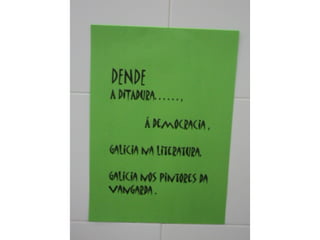 DENDE
A DITADURA......,
Á DEMOCRACIA,
GALICIA NA LITERATURA,
GALICIA NOS PINTORES DA
VANGARDA.